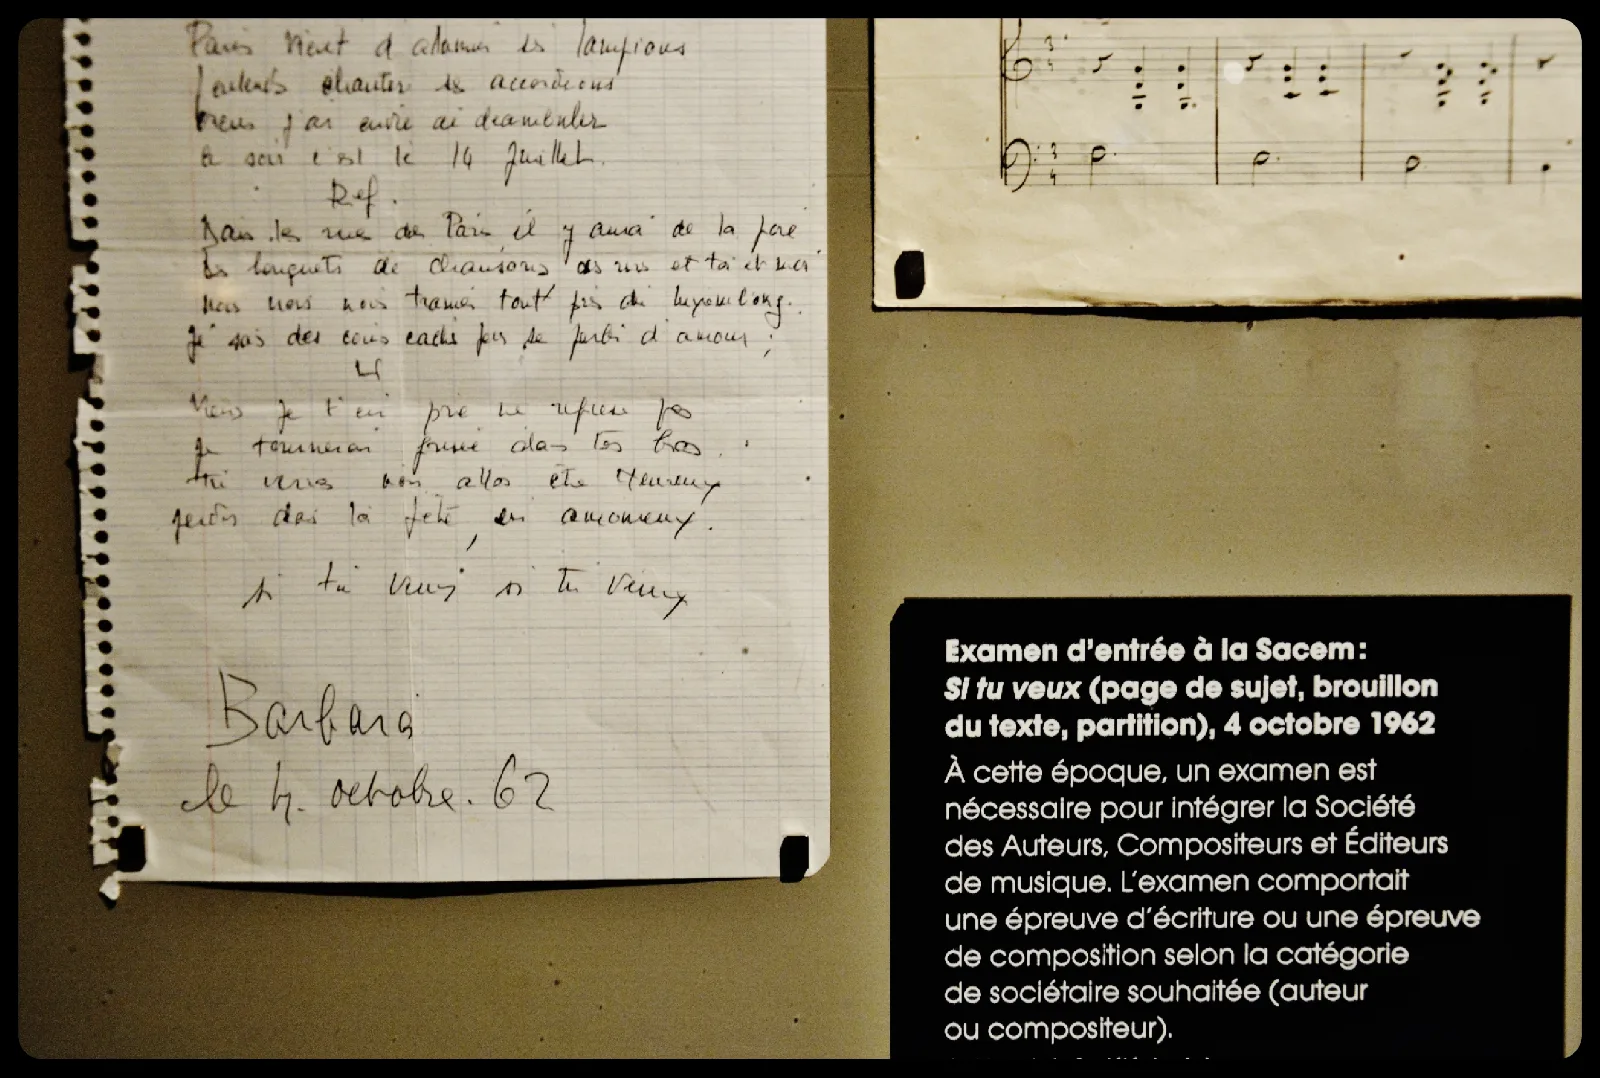 Paris vient d'allumer ses lampions
j'entends chanter les accordéons
viens j'ai envie de déambuler
ce soir c'est le 14 Juillet.
Ref.
Dans les rues de Paris il y aura de la joie
des bouquets de chansons des ris et toi et moi
nous irons nous trainer tout près du Luxembourg.
Je sais des coins cachés pour se parler d'amour
Viens je t'en prie ne refuse pas
je tournerai grisée dans tes bras.
tu verras nous allons être Heureux
perdus dans la fête, en amoureux.
si tu veux, si tu veux
Barbara
le 4. octobre. 62
3
4
3
4
Examen d'entrée à la Sacem :
Si tu veux (page de sujet, brouillon
du texte, partition), 4 octobre 1962
À cette époque, un examen est
nécessaire pour intégrer la Société
des Auteurs, Compositeurs et Éditeurs
de musique. L'examen comportait
une épreuve d'écriture ou une épreuve
de composition selon la catégorie
de sociétaire souhaitée (auteur
ou compositeur).